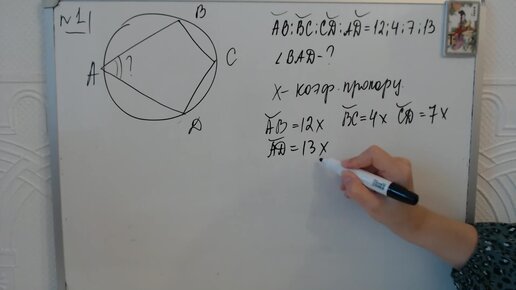 №1
B
C
A
?
D
AB:BC:CD:AD=12;4;7;13
∠BAD-?
X- коэф. пропорц.
AB=12x BC=4x CD=7x
AD=13x